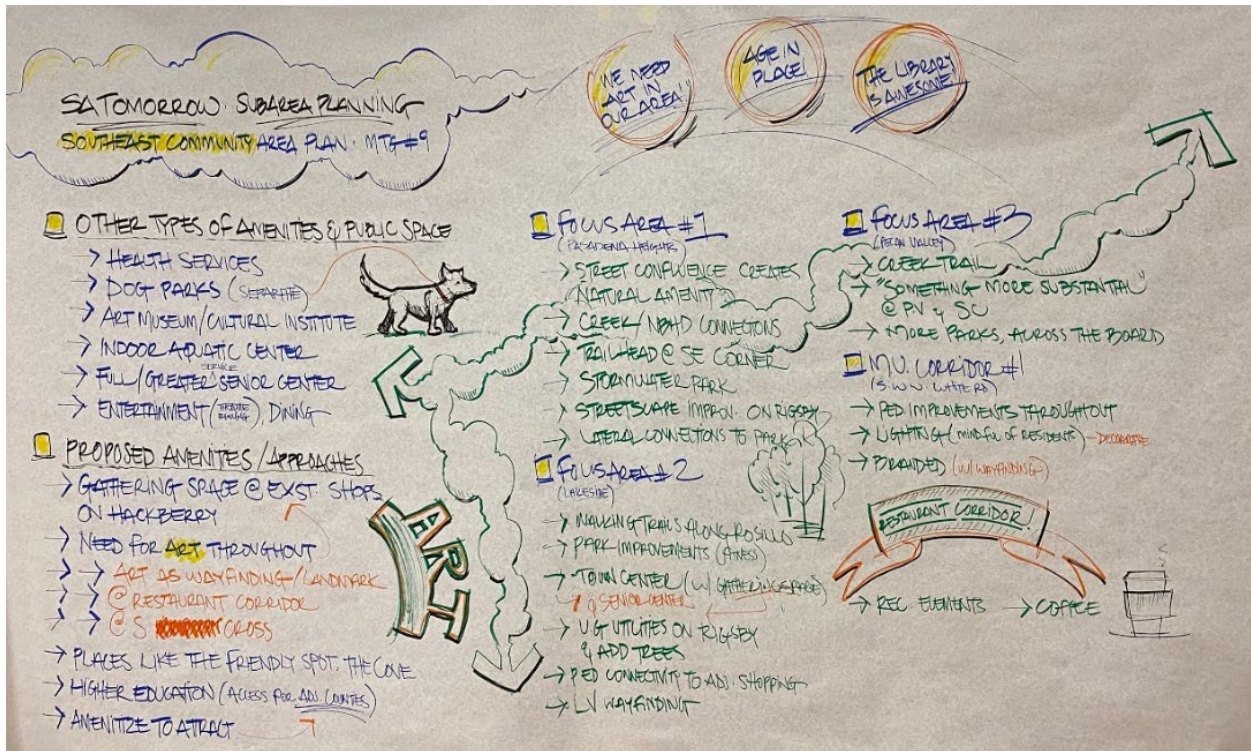 SA TOMORROW · SUBAREA PLANNING
SOUTHEAST COMMUNITY AREA PLAN · MTG #9
WE NEED
ART IN
OUR AREA!
AGE IN
PLACE!
THE LIBRARY
IS AWESOME!
OTHER TYPES OF AMENITIES & PUBLIC SPACE
→ HEALTH SERVICES
→ DOG PARKS (SEPARATE)
→ ART MUSEUM/CULTURAL INSTITUTE
→ INDOOR AQUATIC CENTER
SERVICE
→ FULL/GREATER ^ SENIOR CENTER
→ ENTERTAINMENT (THEATRE BOWLING), DINING
PROPOSED AMENITIES/APPROACHES
→ GATHERING SPACE @ EXST. SHOPS
ON HACKBERRY
→ NEED FOR ART THROUGHOUT
→ → ART AS WAYFINDING/LANDMARK
→ → @ RESTAURANT CORRIDOR
→ → @ S CROSS
→ PLACES LIKE THE FRIENDLY SPOT, THE COVE
→ HIGHER EDUCATION (ACCESS FOR ADJ. COUNTIES)
→ AMENITIZE TO ATTRACT
ART
FOCUS AREA #1
(PASADENA HEIGHTS)
→ STREET CONFLUENCE CREATES
NATURAL AMENITY
→ CREEK/NBHD CONNECTIONS
→ TRAILHEAD @ SE CORNER
→ STORMWATER PARK
→ STREETSCAPE IMPROV. ON RIGSBY
→ LATERAL CONNECTIONS TO PARK
FOCUS AREA #2
(LAKESIDE)
→ WALKING TRAILS ALONG ROSILLO
→ PARK IMPROVEMENTS (FITNESS)
→ TOWN CENTER (W/ GATHERING SPACE)
& SENIOR CENTER
→ UG UTILITIES ON RIGSBY
& ADD TREES
→ PED CONNECTIVITY TO ADJ. SHOPPING
→ LV WAYFINDING
FOCUS AREA #3
(PECAN VALLEY)
→ CREEK TRAIL
→ "SOMETHING MORE SUBSTANTIAL"
@ PV & SC
→ MORE PARKS, ACROSS THE BOARD
M.U. CORRIDOR #1
(S WW WHITE RD)
→ PED IMPROVEMENTS THROUGHOUT
→ LIGHTING (MINDFUL OF RESIDENTS) - DECORATIVE
→ BRANDED (W/ WAYFINDING)
RESTAURANT CORRIDOR!
→ REC ELEMENTS → COFFEE